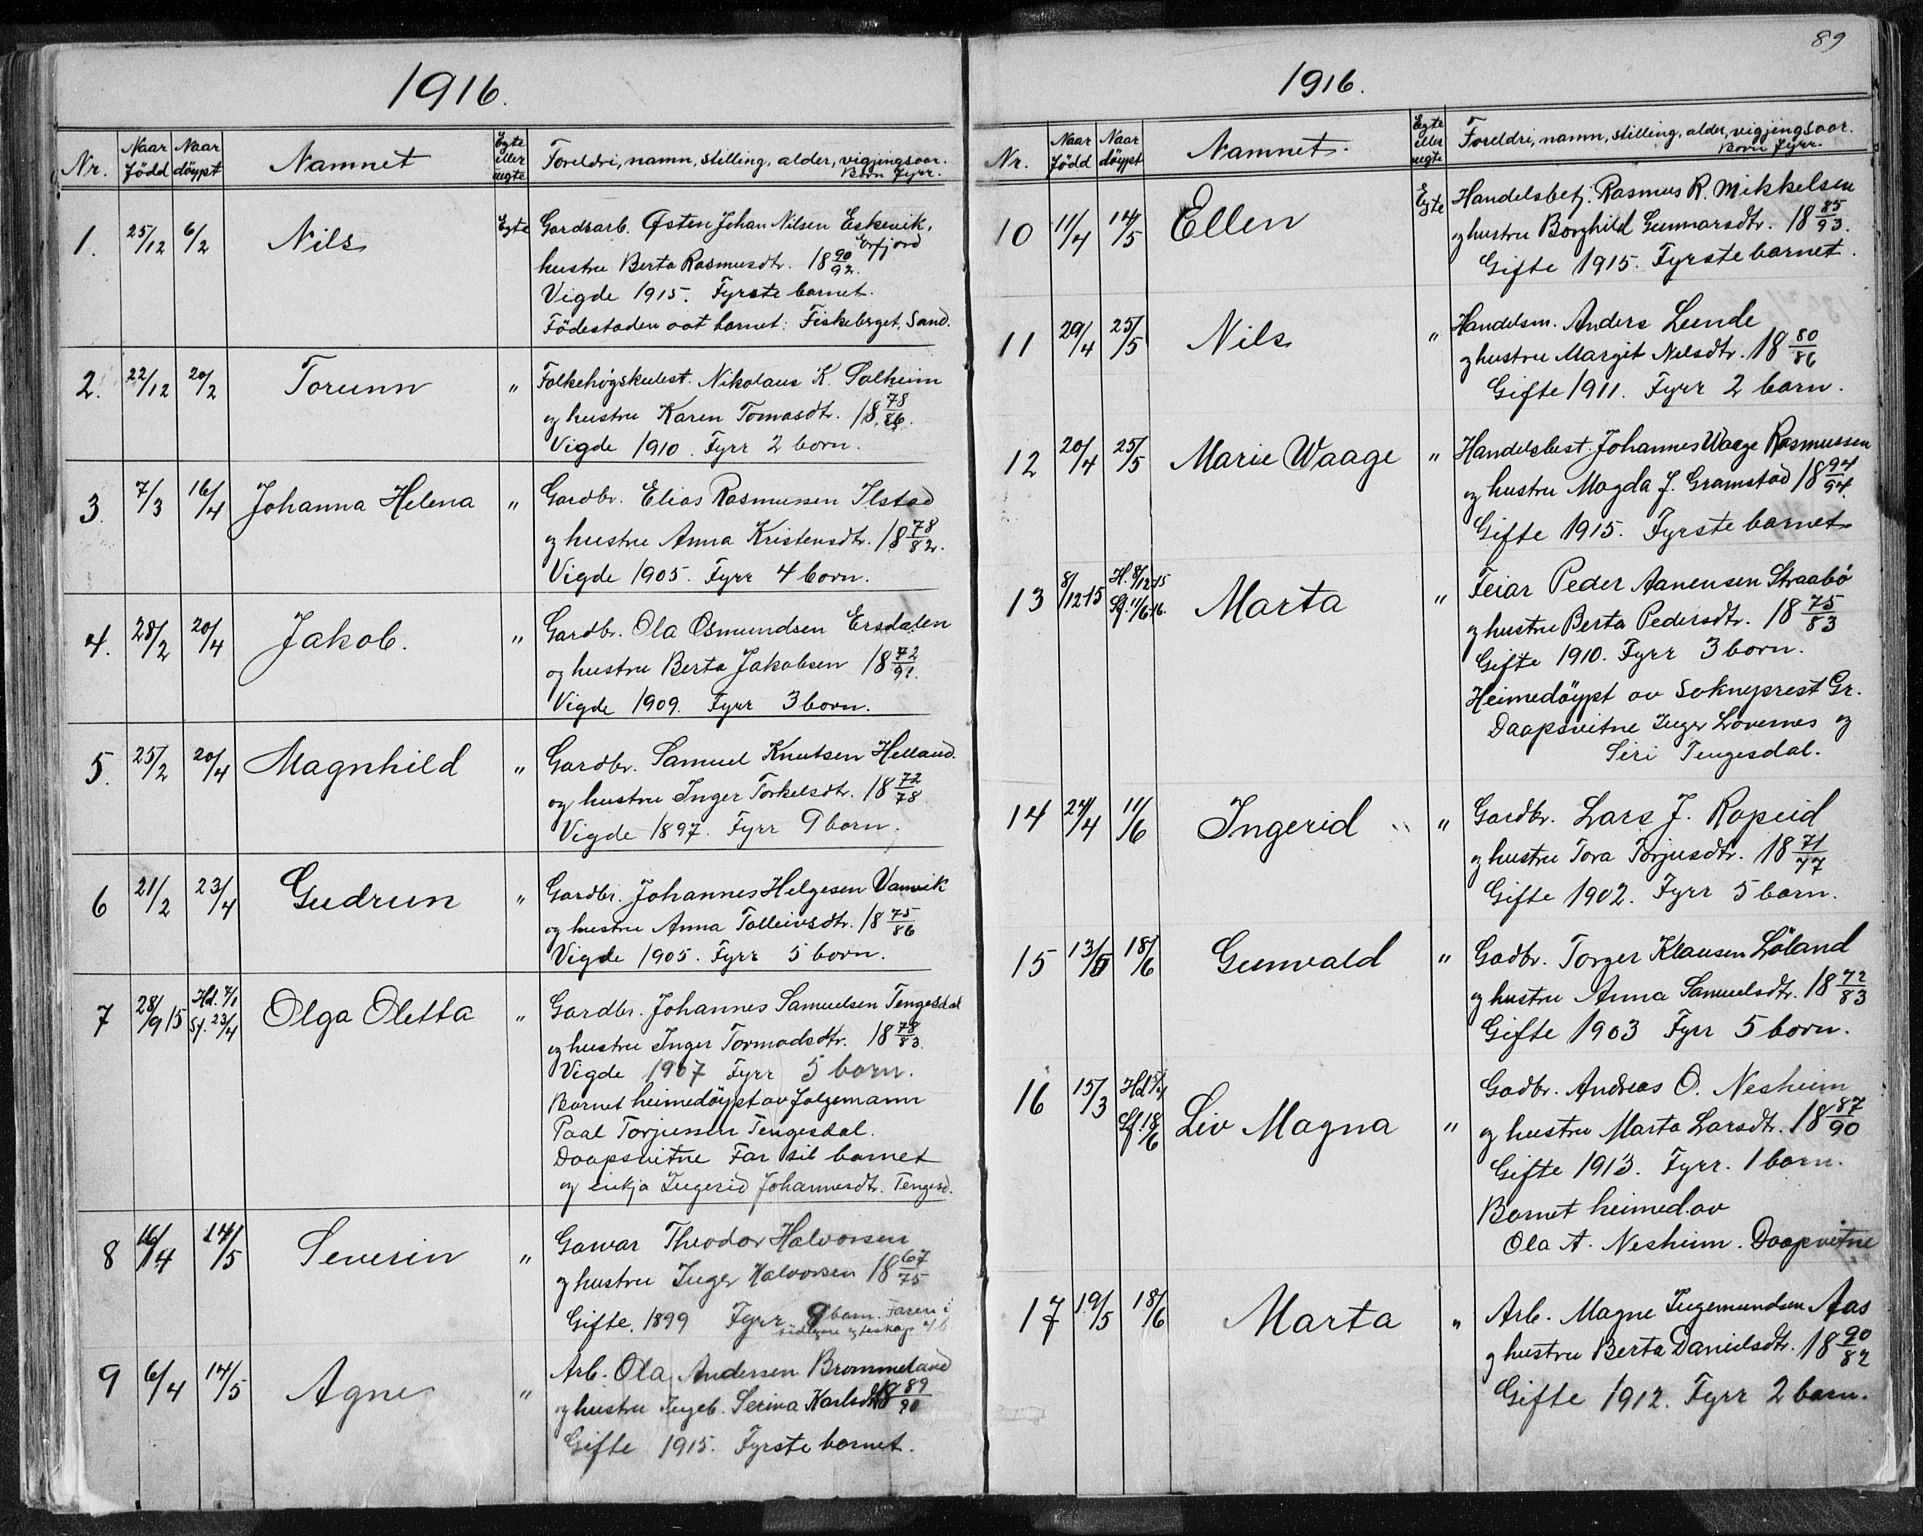 1916.
Nr. Naar Född Naar döypt Namnet Egte eller uegte Foreldri, namn, stilling, alder, vigjingsaar. Born fyrr.
1. 25/12 6/2 Nils Egte Gardsarb. Østen Johan Nilsen Eskevik, Erfjord
hustru Berta Rasmusdtr. 18 90/92.
Vigde 1915. Fyrste barnet.
Födestaden aat barnet: Fiskeberget, Sand.
2. 22/12 20/2 Torunn " Folkehøgskulest. Nikolaus K. Solheim
og hustru Karen Tomasdtr. 18 78/86.
Vigde 1910. Fyrr 2 born.
3. 7/3 16/4 Johanna Helena " Gardbr. Elias Rasmussen Ilstad
og hustru Anna Kristensdtr. 18 78/82.
Vigde 1905. Fyrr 4 born.
4. 28/2 20/4 Jakob. " Gardbr. Ola Osmundsen Ersdalen
og hustru Berta Jakobsen 18 72/91.
Vigde 1909. Fyrr 3 born.
5. 25/2 20/4 Magnhild " Gardbr. Samuel Knutsen Helland.
og hustru Inger Torkelsdtr. 18 72/78.
Vigde 1897. Fyrr 9 born.
6 21/2 23/4 Gudrun " Gardbr. Johannes Helgesen Vanvik
og hustru Anna Tolleivsdtr. 18 75/86
Vigde 1905. Fyrr 5 born.
7 28/9 15 Hd. 7/1 Sf. 23/4 Olga Oletta " Gardbr. Johannes Samuelsen Tengesdal
og hustru Inger Tormodsdtr. 18 78/83.
Vigde 1907 Fyrr 5 born.
Barnet heimedöypt av folgemann
Paal Torjussen Tengesdal.
Daapsvitne Far til barnet
og enkja Ingerid Johannesdtr. Tengesd.
8 16/4 14/5 Severin " Garvar Theodor Halvorsen
og hustru Inger Halvorsen 18 67/75
Gifte 1899 Fyrr 9 born. Faren i
tidlegare egteskap 4 b
9 6/4 14/5 Agne " Arb. Ola Andersen Brommeland
og hustru Ingeb. Serina Karlsdtr 18 89/90
Gifte 1915. Fyrste barnet.
89
1916.
Nr. Naar Född Naar döypt Namnet. Egte eller uegte Foreldri, namn, stilling, alder, vigjingsaar. Born fyrr.
10 11/4 14/5 Ellen Egte Handelsbetj. Rasmus R. Mikkelsen
og hustru Borghild Gunnarsdtr. 18 85/93.
Gifte 1915. Fyrste barnet.
11 29/4 25/5 Nils " Handelsm. Anders Lunde
og hustru Margit Nilsdtr. 18 80/86
Gifte 1911. Fyrr 2 born.
12 20/4 25/5 Marie Waage " Handelsbest. Johannes Waage Rasmussen
og hustru Magda J. Gramstad 18 94/94.
Gifte 1915. Fyrste barnet
13 8/12 15 H. 8/12 15 Sf. 11/6 16. Marta " Feiar Peder Aanensen Straabø
og hustru Berta Pedersdtr. 18 75/83
Gifte 1910. Fyrr 3 born.
Heimedöypt av Sokneprest Gr.
Daapsvitne Inger Lovernes og
Siri Tengesdal.
14 24/4 11/6 Ingerid " Gardbr. Lars J. Ropeid
og hustru Tora Torjusdtr. 18 71/77
Gifte 1902. Fyrr 5 born.
15 13/5 18/6 Gunvald " Gadbr. Torger Klausen Løland
og hustru Anna Samuelsdtr. 18 72/83
Gifte 1903 Fyrr 5 born.
16 15/3 Hd 15/4 Sf. 18/6 Liv Magna " Gadbr. Andreas O. Nesheim
og hustru Marta Larsdtr. 18 87/90
Gifte 1913. Fyrr. 1 born.
Barnet heimed. av
Ola A. Nesheim. Daapvitne
17 19/5 18/6 Marta " Arb. Magne Ingemundsen Aas
og hustru Berta Danielsdtr. 18 90/82
Gifte 1912. Fyrr 2 born.